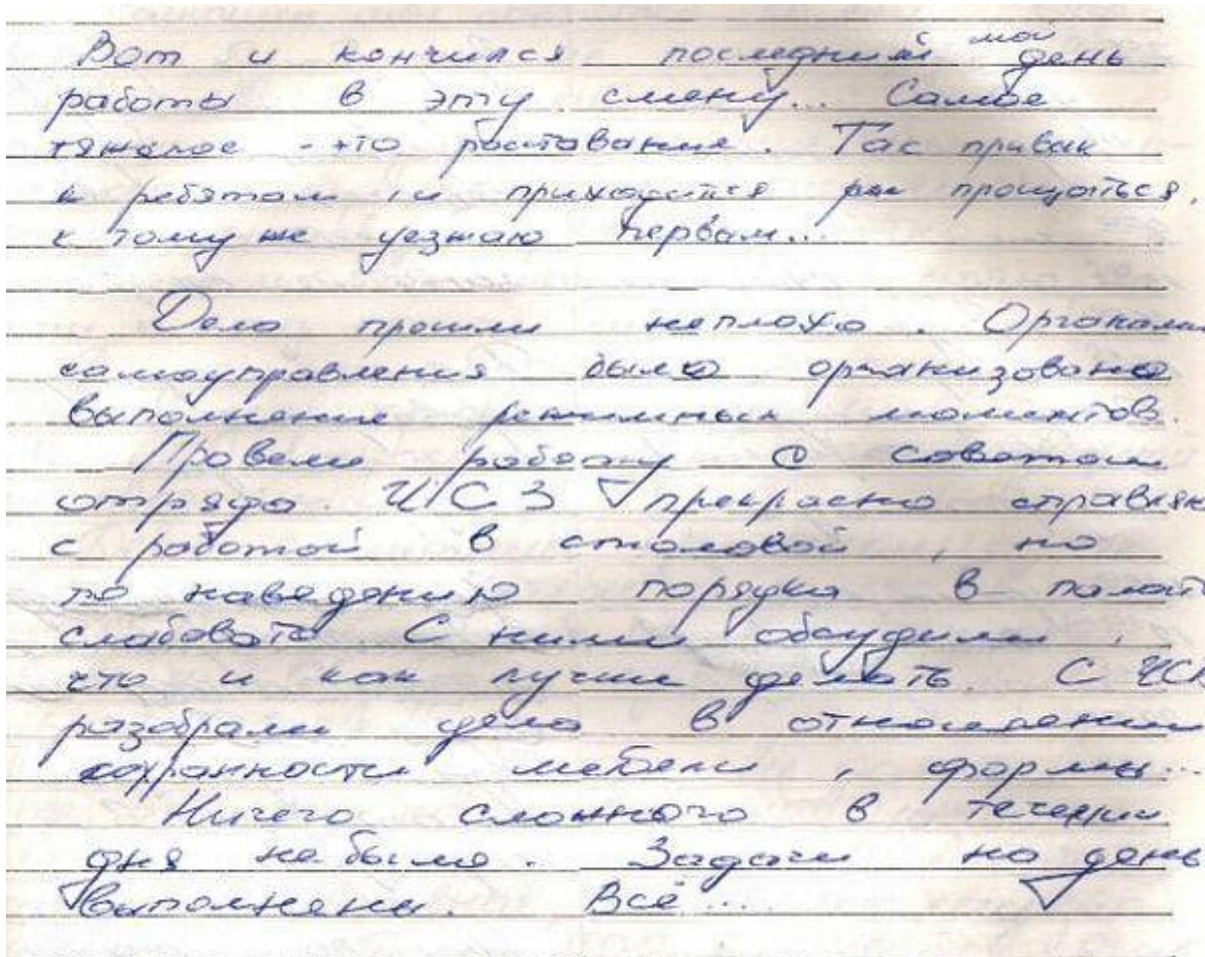 Вот и кончился последний мой день
работы в эту смену... Самое
тяжелое - это расставание. Так привык
к ребятам, и приходится прощаться,
к тому же уезжаю первым...
Дела прошли неплохо. Органами
самоуправления было организовано
выполнение режимных моментов.
Провели работу с советом
отряда. ЧСЗ прекрасно справлял
с работой в столовой, но
по наведению порядка в палат
слабовато. С ними обсудили,
что и как лучше делать. С ЧСК
разобрали дела в отношении
сохранности мебели, формы...
Ничего сложного в течении
дня не было. Задачи на день
выполнены. Всё...